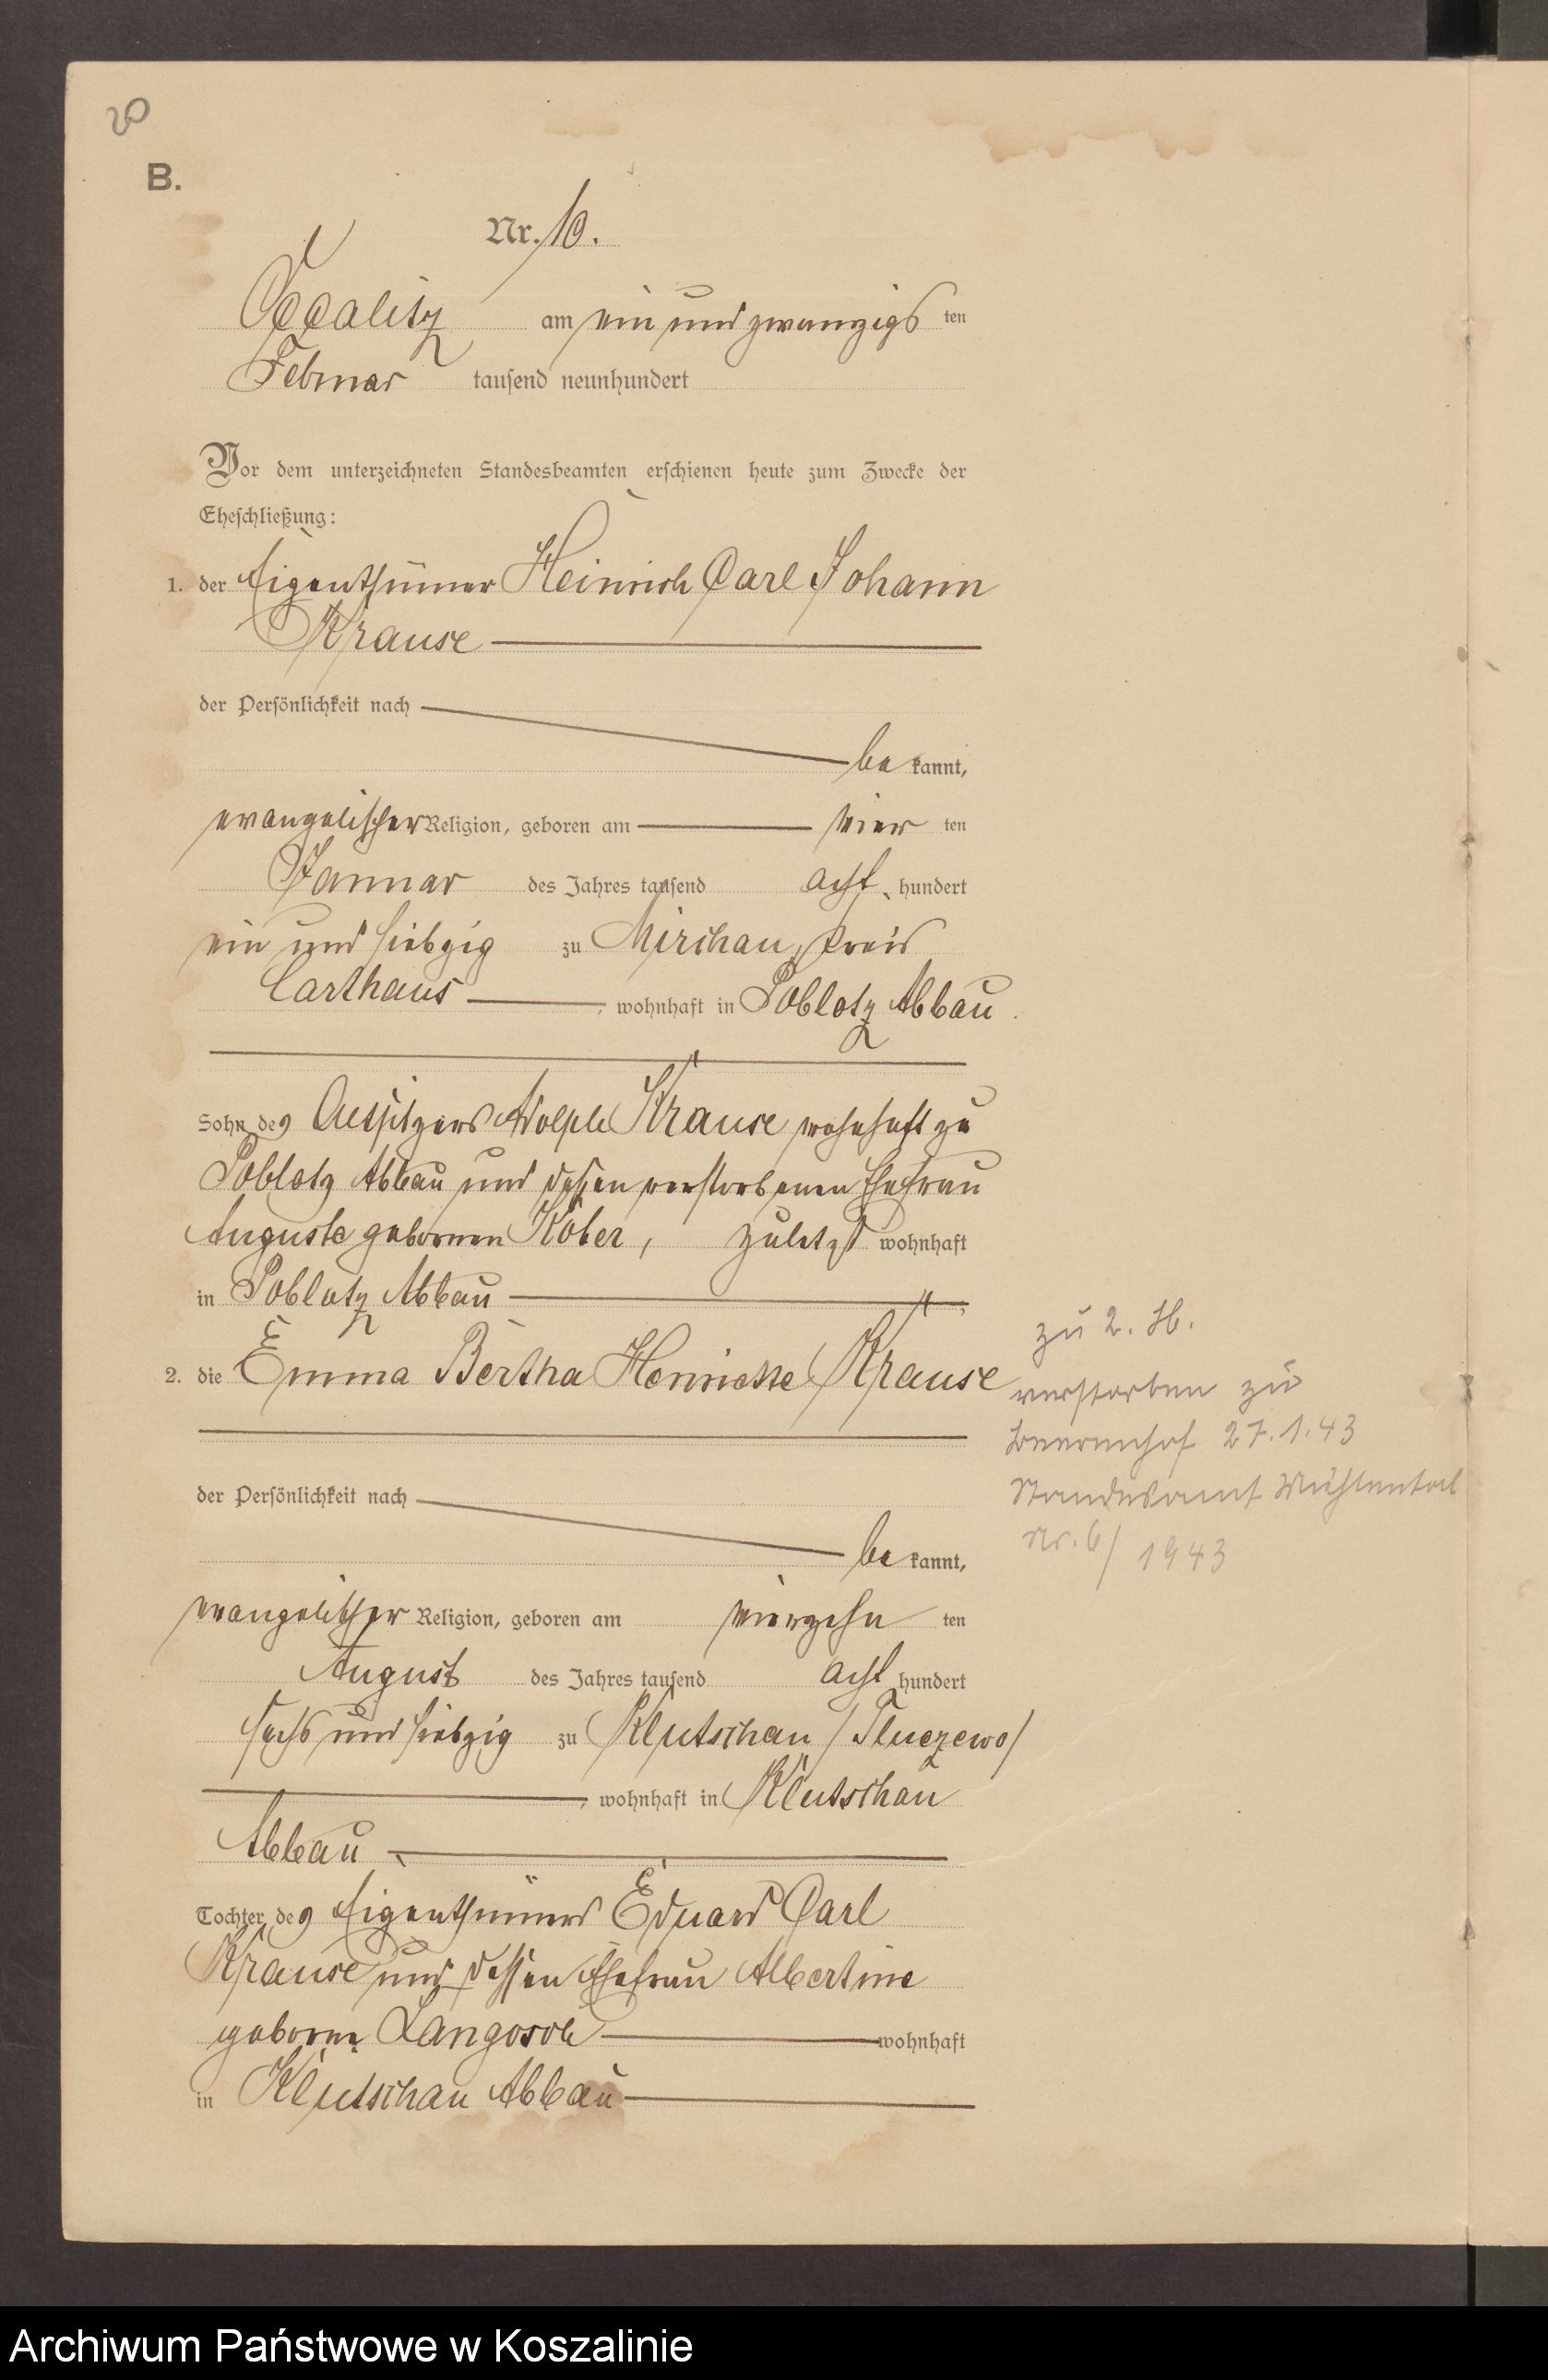 20
B.
Nr. 10.
Occalitz am ein und zwanzigs ten
Februar tausend neunhundert
Vor dem unterzeichneten Standesbeamten erschienen heute zum Zwecke der
Eheschließung:
1. der Eigenthümer Heinrich Carl Johann
Krause
der Persönlichkeit nach
be kannt,
evangelischer Religion, geboren am vier ten
Januar des Jahres tausend acht hundert
ein und siebzig zu Mirchau, Kreis
Carthaus, wohnhaft in Poblotz Abbau
Sohn des Altsitzers Adolph Krause wohnhaft zu
Poblotz Abbau und dessen verstorbenen Ehefrau
Auguste gebornen Köber, zuletzt wohnhaft
in Poblotz Abbau
2. die Emma Bertha Henriette Krause
der Persönlichkeit nach
be kannt,
evangelischer Religion, geboren am vierzehn ten
August des Jahres tausend acht hundert
sechs und siebzig zu Klutschau /Tluczewo/
, wohnhaft in Klutschau
Abbau
Tochter des Eigenthümers Eduard Carl
Krause und dessen Ehefrau Albertine
geborne Langosch wohnhaft
in Klutschau Abbau
zu 2. H.
verstorben zu
27.1.43
Standesamt Mühlental
Nr. 6/1943
Archiwum Państwowe w Koszalinie